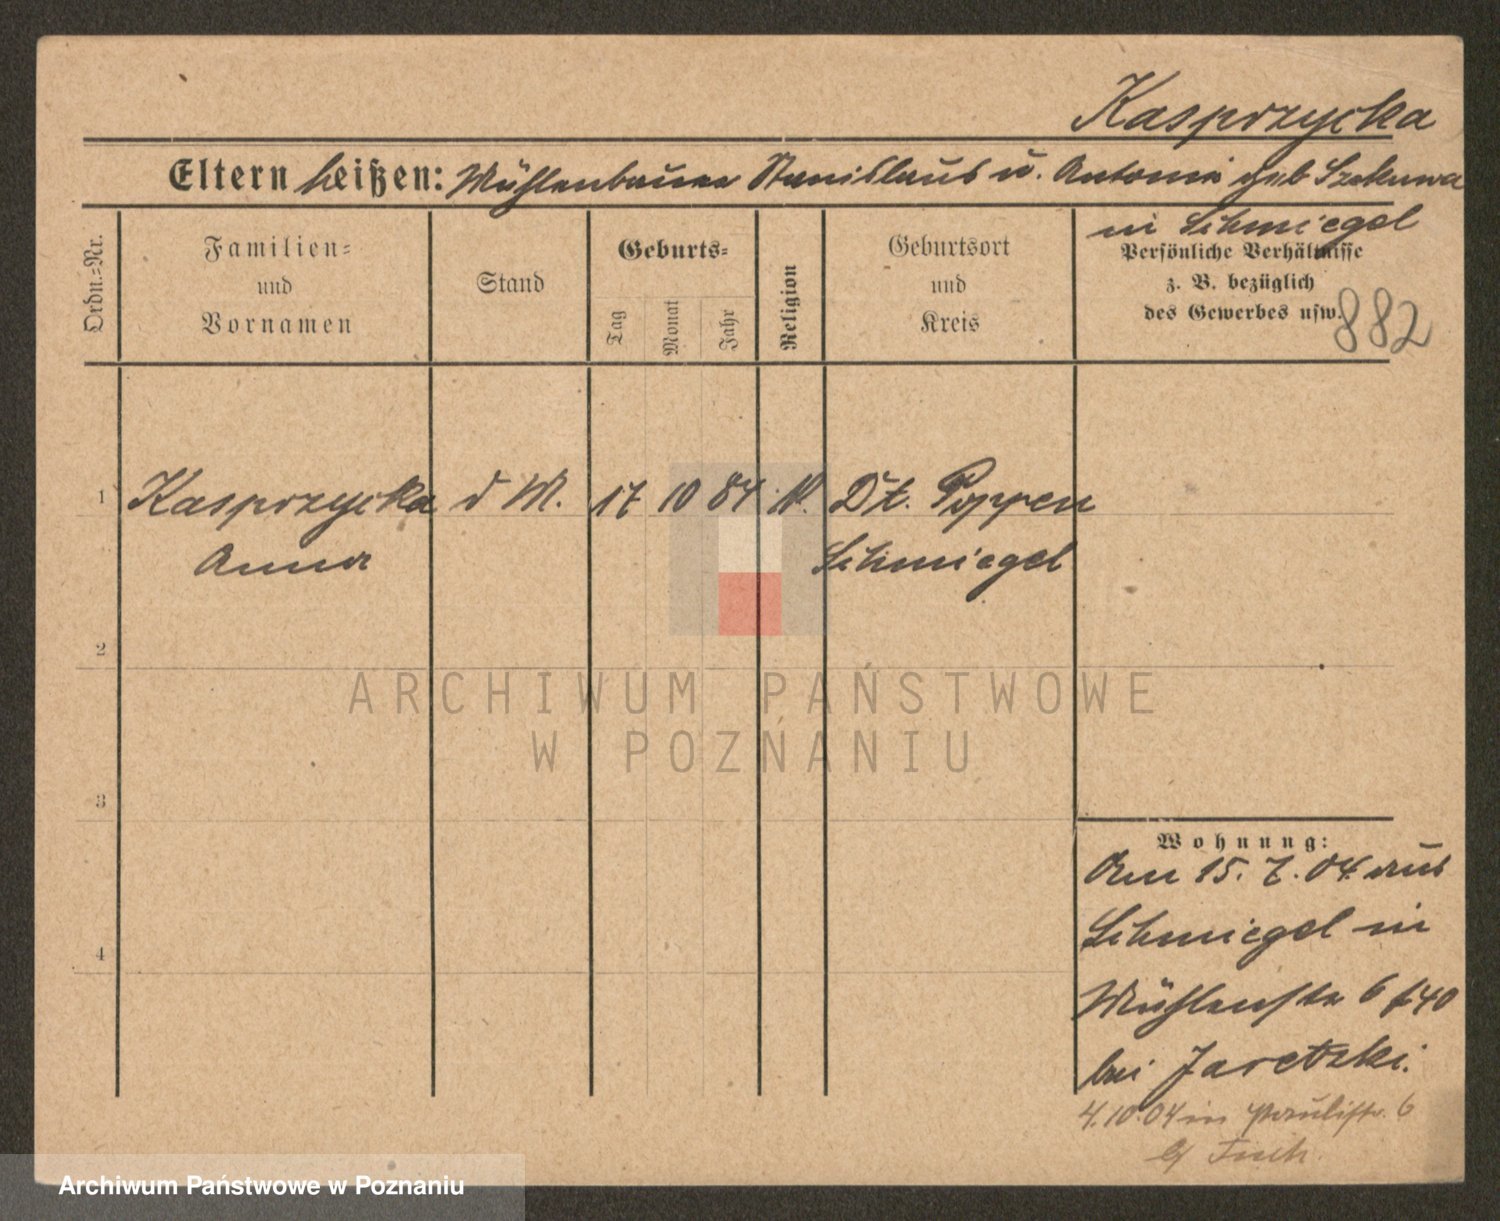 Kasprzycka
Eltern heißen: Mühlenbauer Stanislaus u. Antonie geb Szekuwa
in Schmiegel
Ordn.-Nr.
Familien-
und
Vornamen
Stand
Geburts-
Tag
Monat
Jahr
Religion
Geburtsort
und
Kreis
Persönliche Verhältnisse
z. B. bezüglich
des Gewerbes usw.
882
1 Kasprzycka d M. 17 10 84 K. Dt. Poppen
Anna Schmiegel
2
3
4
ARCHIWUM PAŃSTWOWE
W POZNANIU
Wohnung:
Am 15. 7. 04 aus
Schmiegel in
Mühlenstr 6 f40
bei Jaretzki.
4.10.04 in Paulistr. 6
b/
Archiwum Państwowe w Poznaniu